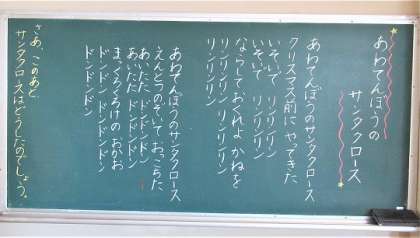 あわてんぼうの
サンタクロース
あわてんぼうのサンタクロース
クリスマス前にやってきた
いそいで リンリンリン
いそいで リンリンリン
ならしておくれよ かねを
リンリンリン リンリンリン
リンリンリン
あわてんぼうのサンタクロース
えんとつのぞいて おっこちた
あいたた ドンドンドン
あいたた ドンドンドン
まっくろくろけの おかお
ドンドンドン ドンドンドン
ドンドンドン
さあ、このあと
サンタクロースはどうしたのでしょう。